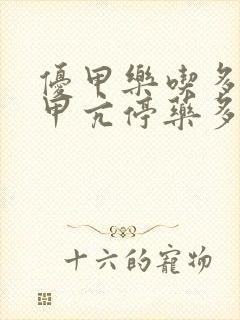 優甲樂喫多
甲亢停藥多
十六的寵物